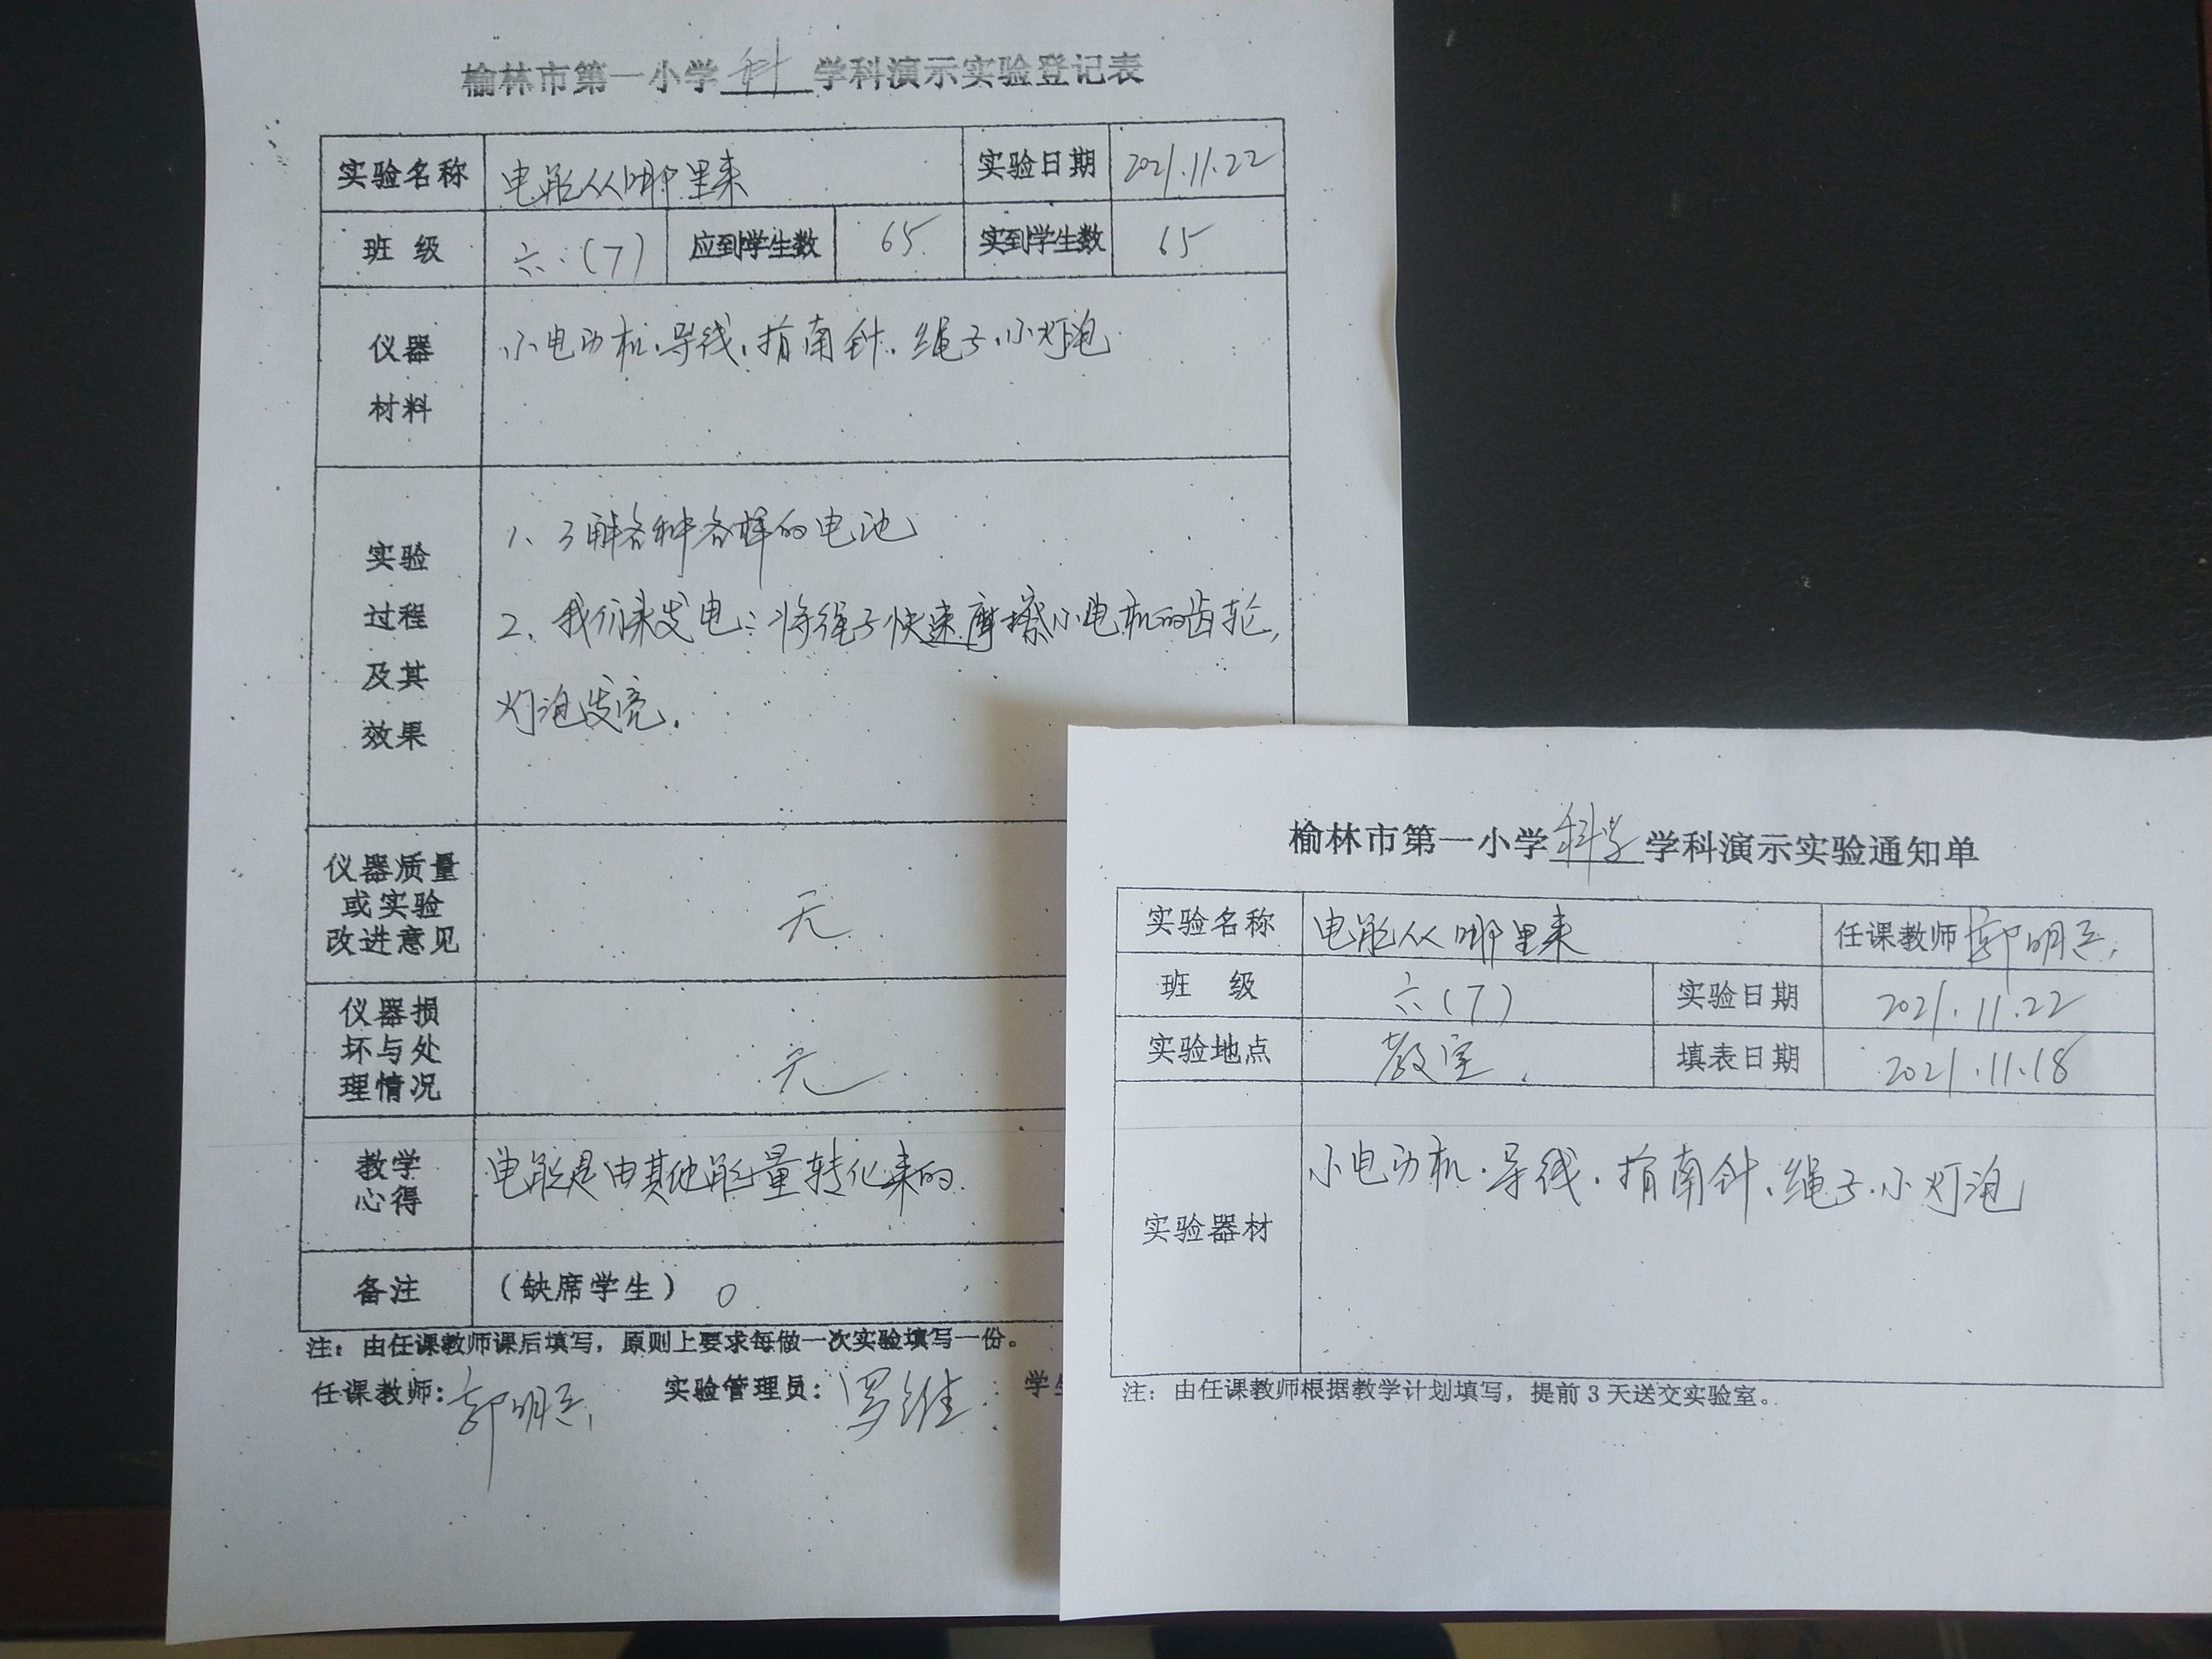 榆林市第一小学 科 学科演示实验登记表
实验名称 电能从哪里来 实验日期 2021.11.22
班 级 六.(7) 应到学生数 65 实到学生数 65
仪器 小电动机.导线.指南针.绳子.小灯泡
材料
实验 1、了解各种各样的电池
过程 2、我们来发电:将绳子快速摩擦小电机的齿轮,
及其 灯泡发亮.
效果
仪器质量
或实验 无
改进意见
仪器损
坏与处 无
理情况
教学 电能是由其他能量转化来的.
心得
备注 (缺席学生) 0
注：由任课教师课后填写，原则上要求每做一次实验填写一份。
任课教师: 郭明 实验管理员: 罗维 学生
榆林市第一小学 科学 学科演示实验通知单
实验名称 电能从哪里来 任课教师 郭明
班 级 六(7) 实验日期 2021.11.22
实验地点 教室. 填表日期 2021.11.18
实验器材 小电动机.导线.指南针.绳子.小灯泡
注：由任课教师根据教学计划填写，提前3天送交实验室。